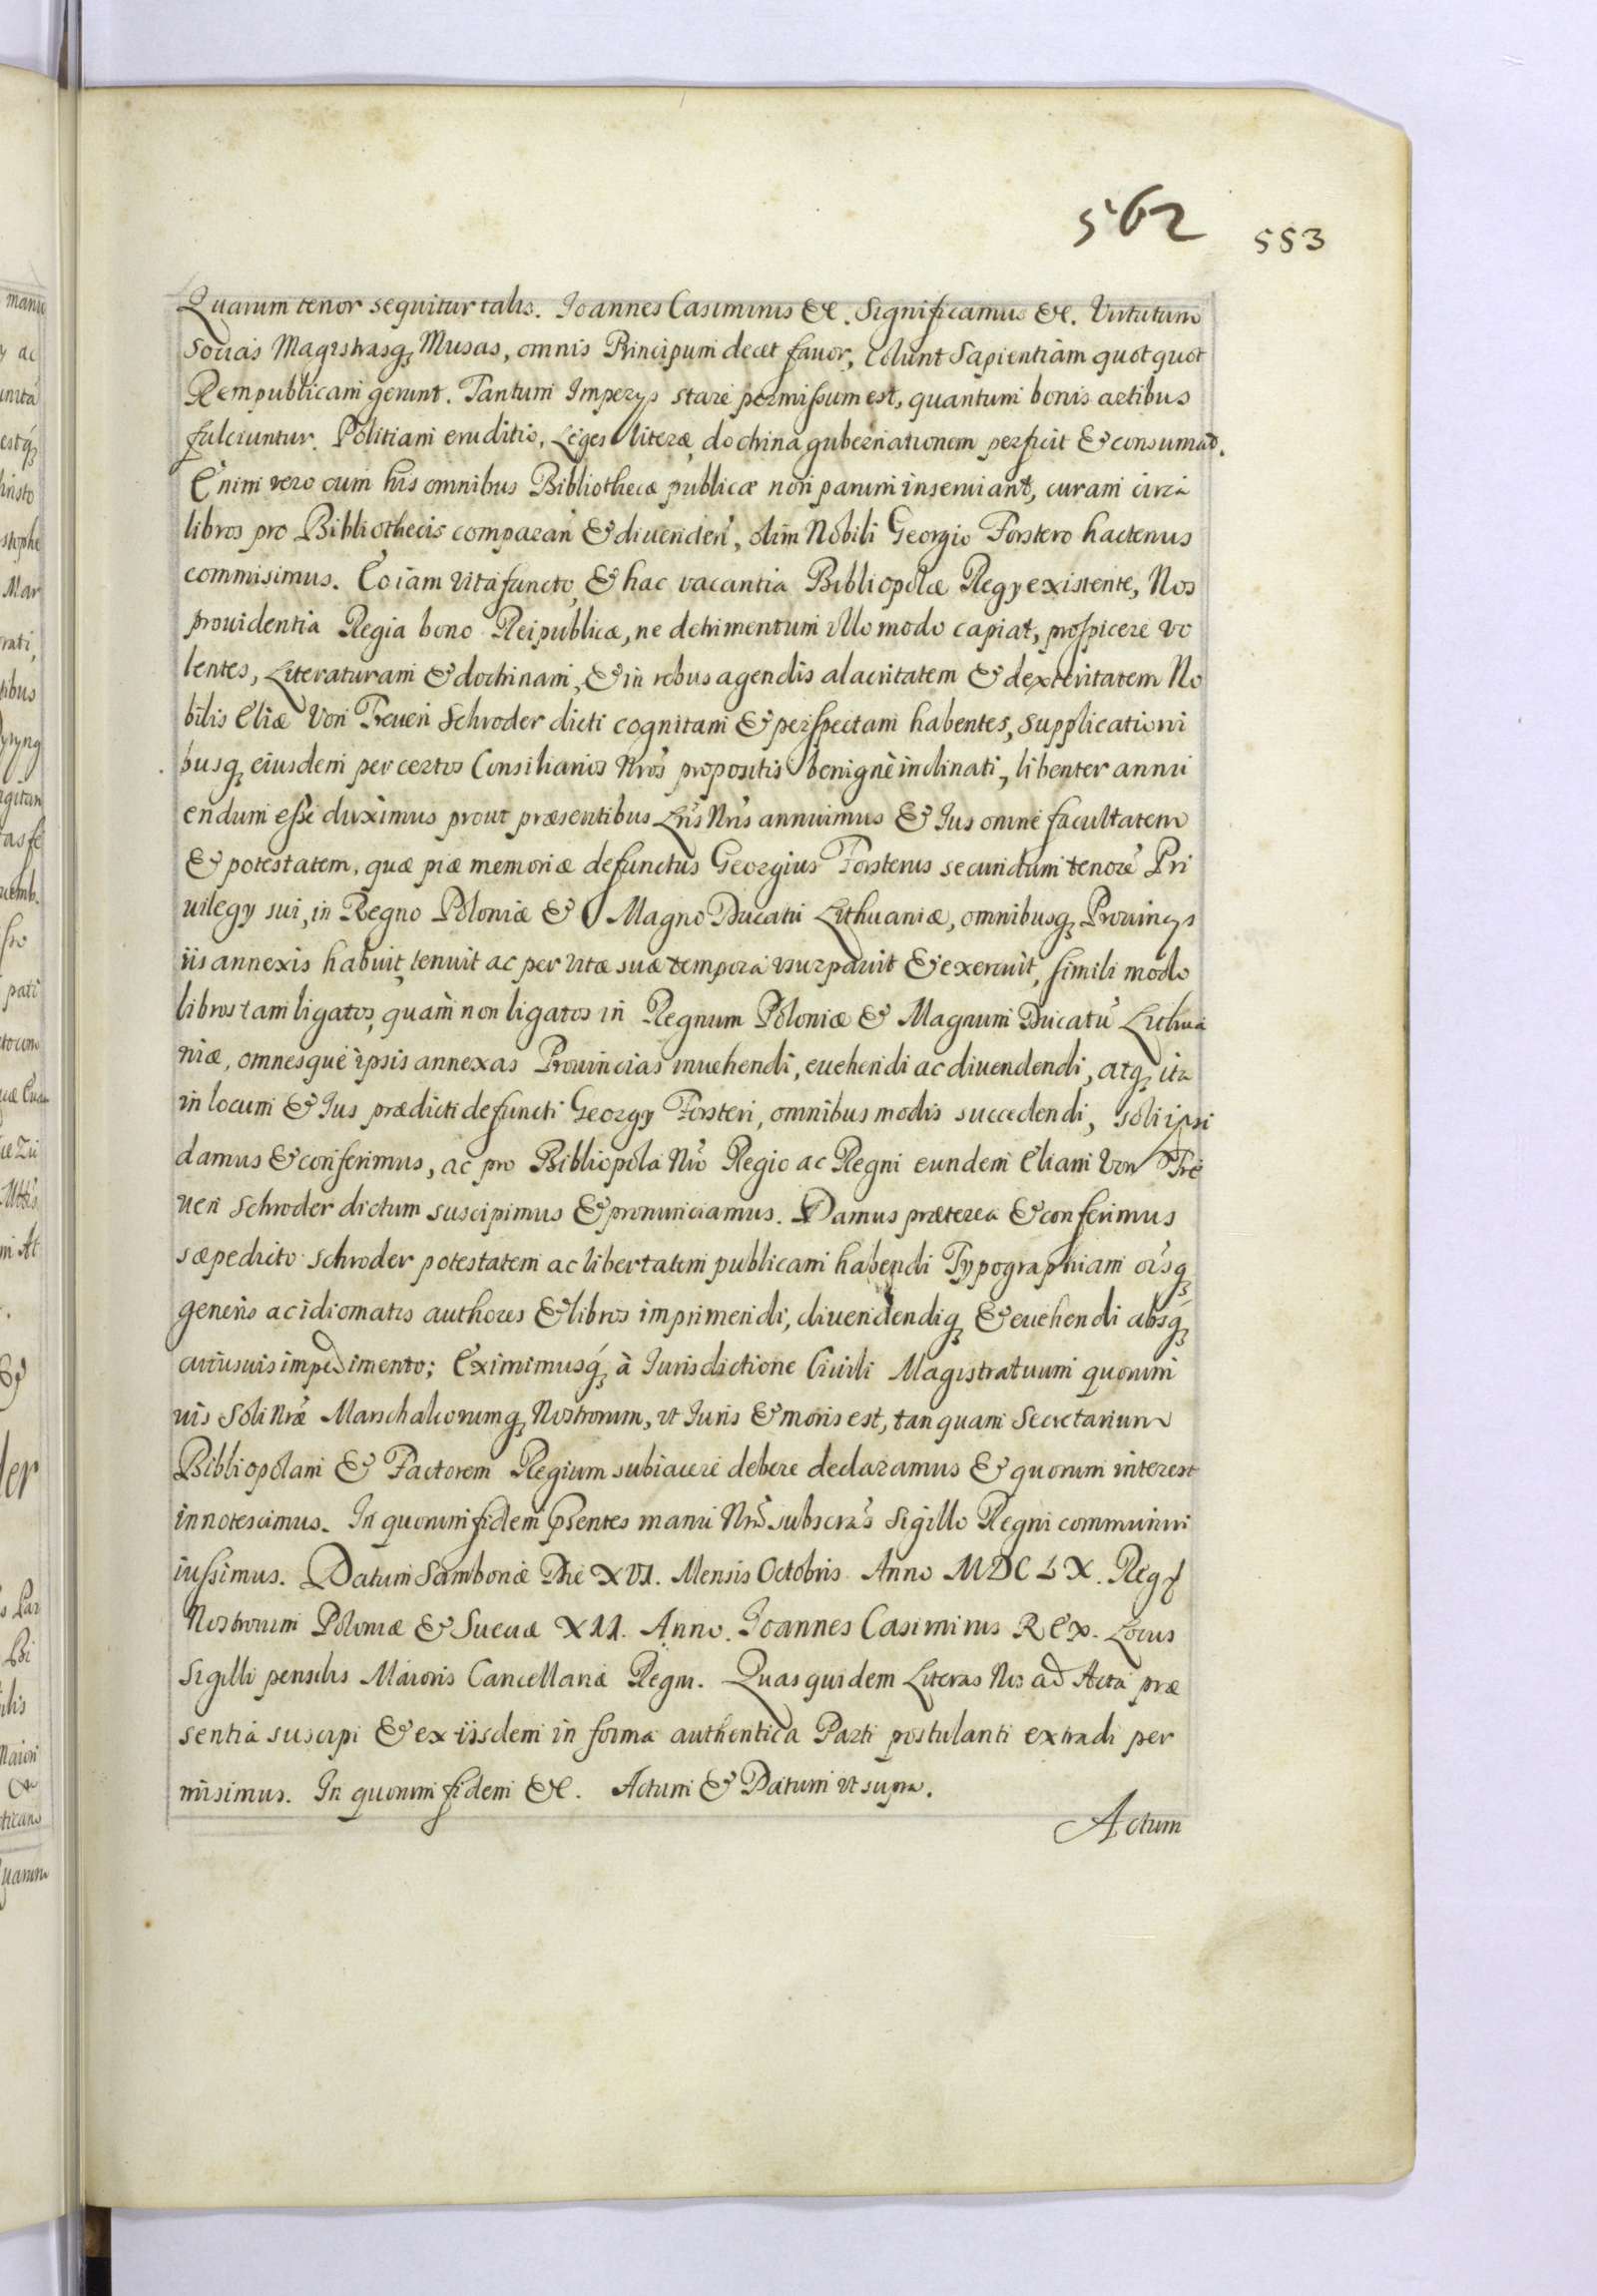 562 553
Quarum tenor sequitur talis. Ioannes Casimirus &c. Significamus &c. Virtutum
Socias Magistrasq Musas, omnis Principum decet fauor, Colunt Sapientiam quot quot
Rempublicam gerunt. Tantum Imperys stare permissum est, quantum bonis artibus
fulciuntur. Politiam eruditio, Leges literæ, doctrina gubernationem perficit & consumat.
Enim vero cum his omnibus Bibliothecæ publicæ non parum inseruiant, curam circa
libros pro Bibliothecis comparari & diuenderi, olim Nobili Georgio Forstero hactenus
commisimus. Eo iam vita functo, & hac vacantia Bibliopolæ Regy existente, Nos
prouidentia Regia bono Reipublicæ, ne detrimentum ullo modo capiat, prospicere vo
lentes, Literaturam & doctrinam, & in rebus agendis alacritatem & dexteritatem No
bilis Eliæ Von Treuen Schroder dicti cognitam & perspectam habentes, supplicationi
busq eiusdem per certos Consiliarios Nros propositis benignè inclinati, libenter annu
endum esse duximus prout præsentibus Lris Nris annuimus & Ius omne facultatem
& potestatem, quæ piæ memoriæ defunctus Georgius Forsterus secundum tenore Pri
uilegy sui, in Regno Poloniæ & Magno Ducatu Lithuaniæ, omnibusq Prouincys
iis annexis habuit, tenuit ac per vitæ suæ tempora usurpauit & exercuit, simili modo
libros tam ligatos, quàm non ligatos in Regnum Poloniæ & Magnum Ducatu Lithua
niæ, omnesque ipsis annexas Prouincias inuehendi, euehendi ac diuendendi, atq ita
in locum & Ius prædicti defuncti Georgy Forsteri, omnibus modis succedendi, soli ipsi
damus & conferimus, ac pro Bibliopola Nro Regio ac Regni eundem Eliam Von Tre
uen Schroder dictum suscipimus & pronunciamus. Damus præterea & conferimus
sæpedicto Schroder potestatem ac libertatem publicam habendi Typographiam oisq
generis ac idiomatis authores & libros imprimendi, diuendendiq & euehendi absq
cuiusuis impedimento; Eximimusq à Iurisdictione Ciuili Magistratuum quorum
uis Soli Nræ Marschalcorumq Nostrorum, vt Iuris & moris est, tanquam Secretarium
Bibliopolam & Factorem Regium subiacere debere declaramus & quorum interest
innotescimus. In quorum fidem psentes manu Nra subscras Sigillo Regni communiri
iussimus. Datum Samboriæ Die XVI. Mensis Octobris Anno MDCLX. Regr
Nostrorum Poloniæ & Sueciæ XII. Anno. Ioannes Casimirus Rex. Locus
Sigilli pensilis Maioris Cancellariæ Regni. Quas quidem Literas Nos ad Acta præ
sentia suscipi & ex iisdem in forma authentica Parti postulanti extradi per
misimus. In quorum fidem &c. Actum & Datum vt supra.
Actum